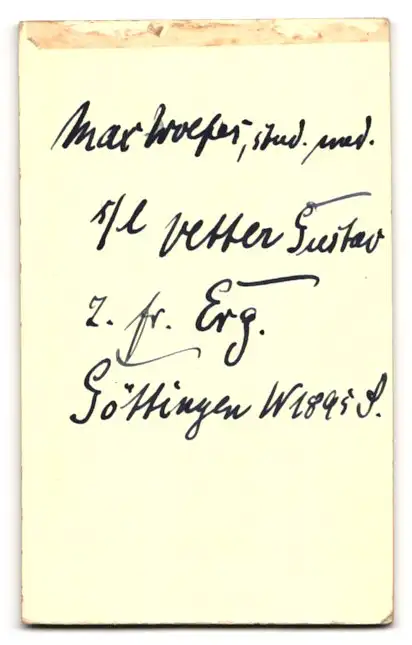 Max Wolfes, stud. med.
s/l Vetter Gustav
z. fr. Erg.
Göttingen W 1895 S.